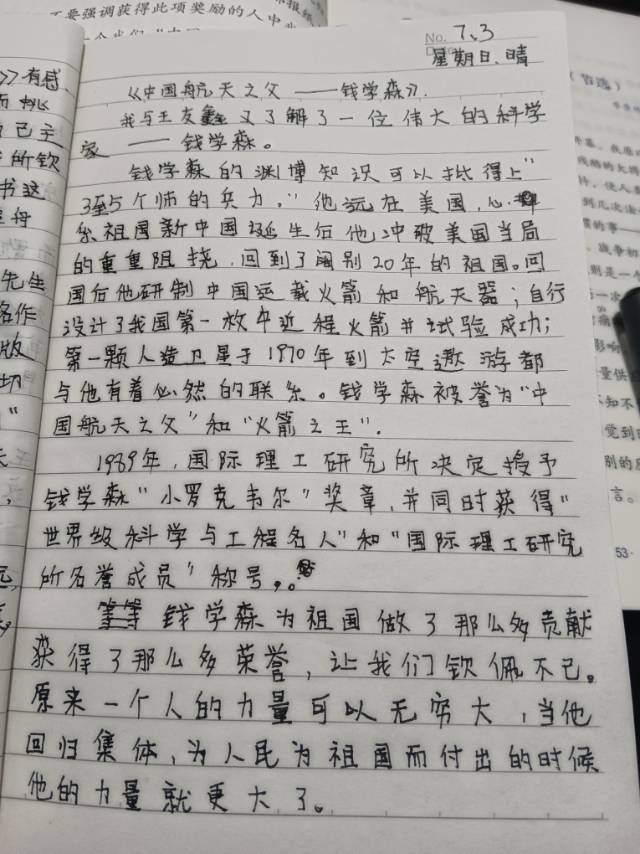 不要强调获得此项奖励的人中
No. 7.3
星期日.晴
《中国航天之父——钱学森》.
我与王友鑫又了解了一位伟大的科学
家——钱学森。
钱学森的渊博知识可以抵得上"
3至5个师的兵力。"他远在美国,心
系祖国新中国诞生后他冲破美国当局
的重重阻挠,回到了阔别20年的祖国。回
国后他研制中国运载火箭和航天器;自行
设计了我国第一枚中近程火箭并试验成功;
第一颗人造卫星于1970年到太空遨游都
与他有着必然的联系。钱学森被誉为"中
国航天之父"和"火箭之王".
1989年,国际理工研究所决定授予
钱学森"小罗克韦尔"奖章,并同时获得"
世界级科学与工程名人"和"国际理工研究
所名誉成员"称号,。
钱学森为祖国做了那么多贡献
获得了那么多荣誉,让我们钦佩不已。
原来一个人的力量可以无穷大,当他
回归集体,为人民为祖国而付出的时候
他的力量就更大了。
》有感
己主
所钦
书这
先生
名作
版
切
(节选)
53